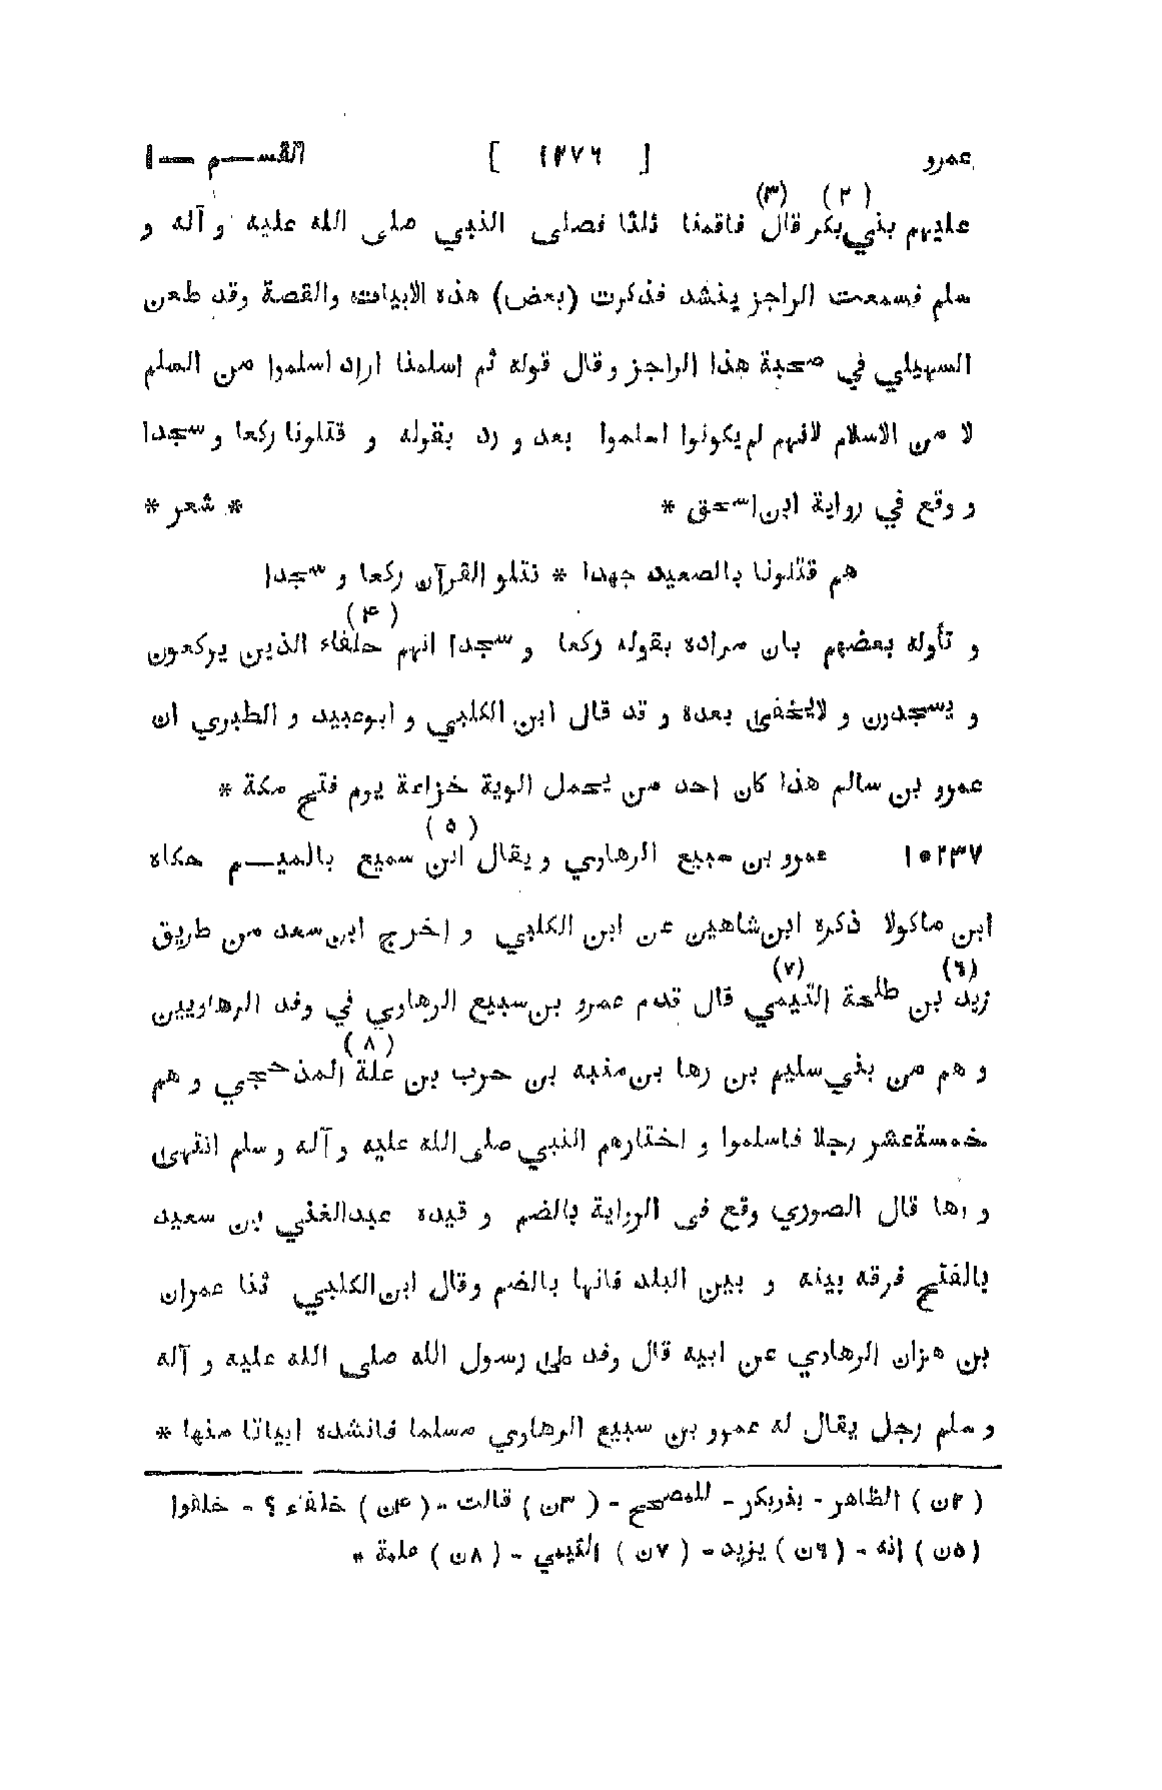 عمرو [ ١٢٧٦ ] القسم — ١
(٢) (٣)
عليهم بني بكر قال فاقمنا ثلثا فصلى النبي صلى الله عليه و آله و
سلم فسمعت الراجز ينشد فذكرت (بعض) هذه الابيات والقصة وقد طعن
السهيلي في صحبة هذا الراجز و قال قوله ثم اسلمنا اراد اسلموا من السلم
لا من الاسلام لانهم لم يكونوا اسلموا بعد و رد بقوله و قتلونا ركعا و سجدا
و وقع في رواية ابن اسحق * * شعر *
هم قتلونا بالصعيد جهدا * نتلو القرآن ركعا و سجدا
(۴)
و تأوله بعضهم بان مراده بقوله ركعا و سجدا انهم حلفاء الذين يركعون
و يسجدون و لايخفى بعده و قد قال ابن الكلبي و ابوعبيد و الطبري ان
عمرو بن سالم هذا كان احد من يحمل الوية خزاعة يوم فتح مكة *
(٥)
١٠٢٣٧ عمرو بن سبيع الرهاوي و يقال ابن سميع بالميم حكاه
ابن ماكولا ذكره ابن شاهين عن ابن الكلبي و اخرج ابن سعد من طريق
(٦) (٧)
زيد بن طلحة التيمي قال قدم عمرو بن سبيع الرهاوي في وفد الرهاويين
(٨)
و هم من بني سليم بن رها بن منبه بن حرب بن علة المذحجي و هم
خمسة عشر رجلا فاسلموا و اختارهم النبي صلى الله عليه و آله و سلم انتهى
و رها قال الصوري وقع فى الرواية بالضم و قيده عبدالغني بن سعيد
بالفتح فرقه بينه و بين البلد فانها بالضم وقال ابن الكلبي ثنا عمران
بن هزان الرهاوي عن ابيه قال وفد على رسول الله صلى الله عليه و آله
و سلم رجل يقال له عمرو بن سبيع الرهاوي مسلما فانشده ابياتا منها *
(٢ن) الظاهر - بنوبكر - للمصحح - (٣ن) قالت - (۴ن) خلفاء ؟ - خلفوا
(٥ن) إنه - (٦ن) يزيد - (٧ن) التيمي - (٨ن) علبة *